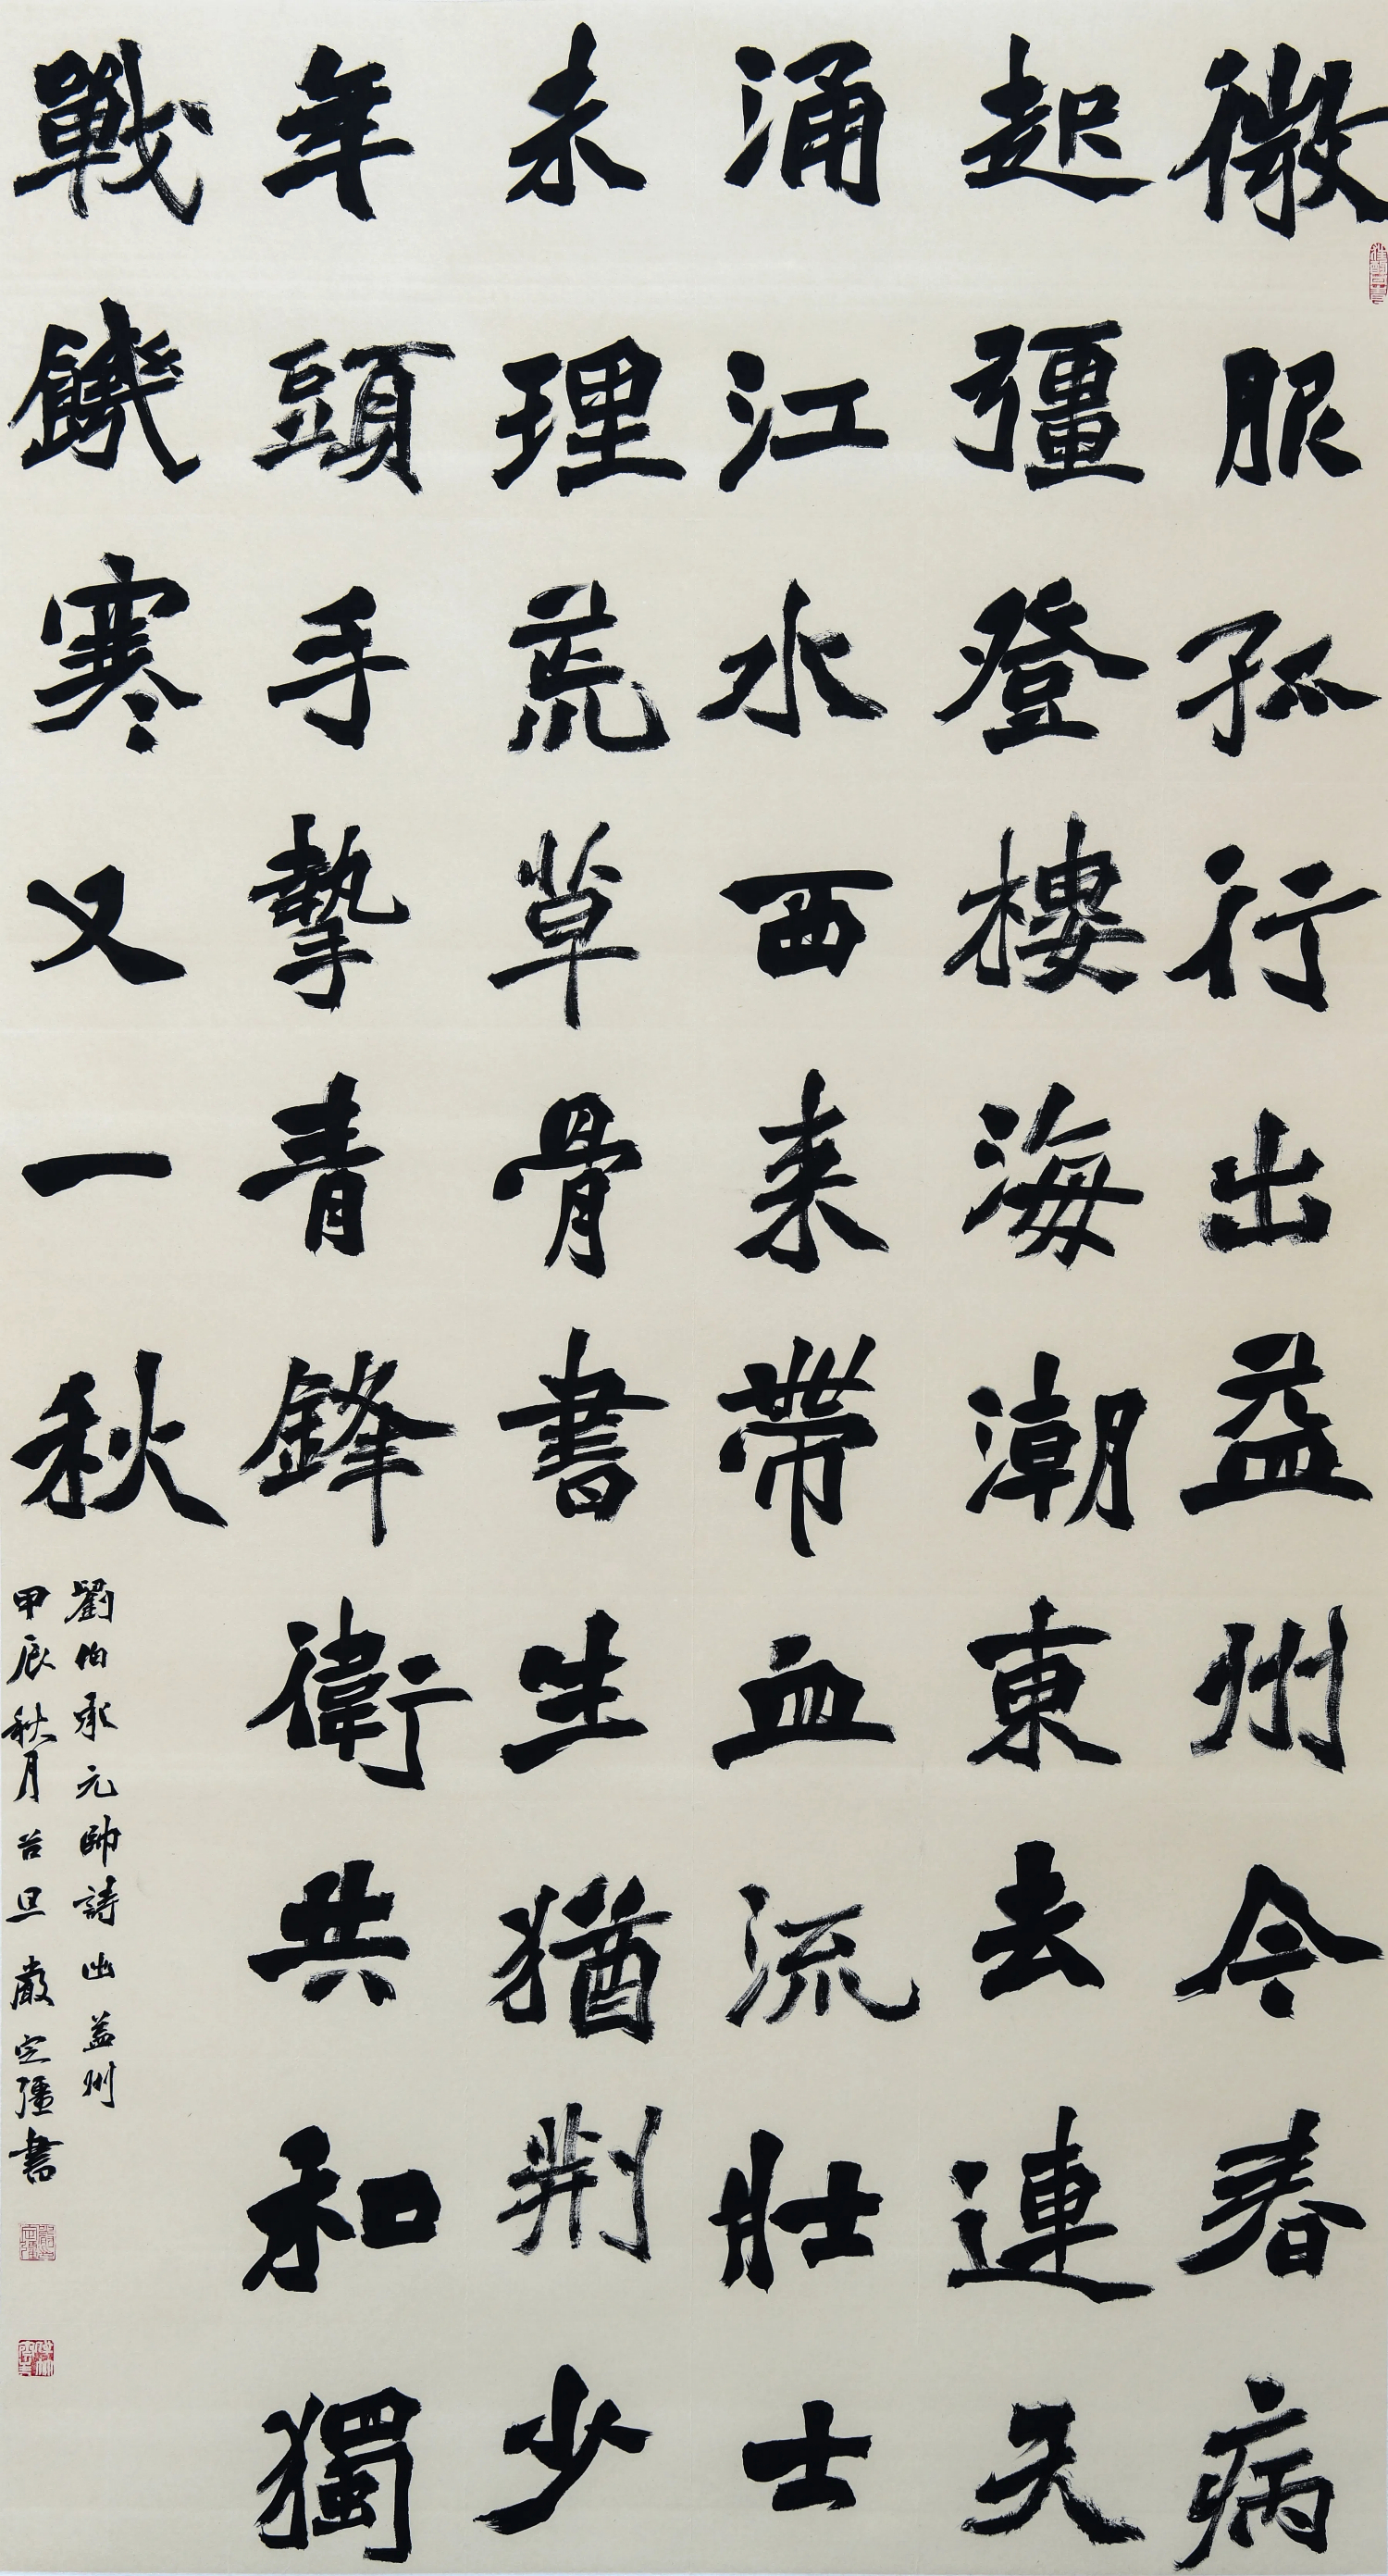 微服孤行出益州今春病
起彊登樓海潮東去連天
涌江水西来帶血流壯士
未理荒草骨書生猶荆少
年頭手摯青鋒衛共和獨
戰饑寒又一秋
劉伯承元帥詩出益州
甲辰秋月吉旦嚴定彊書